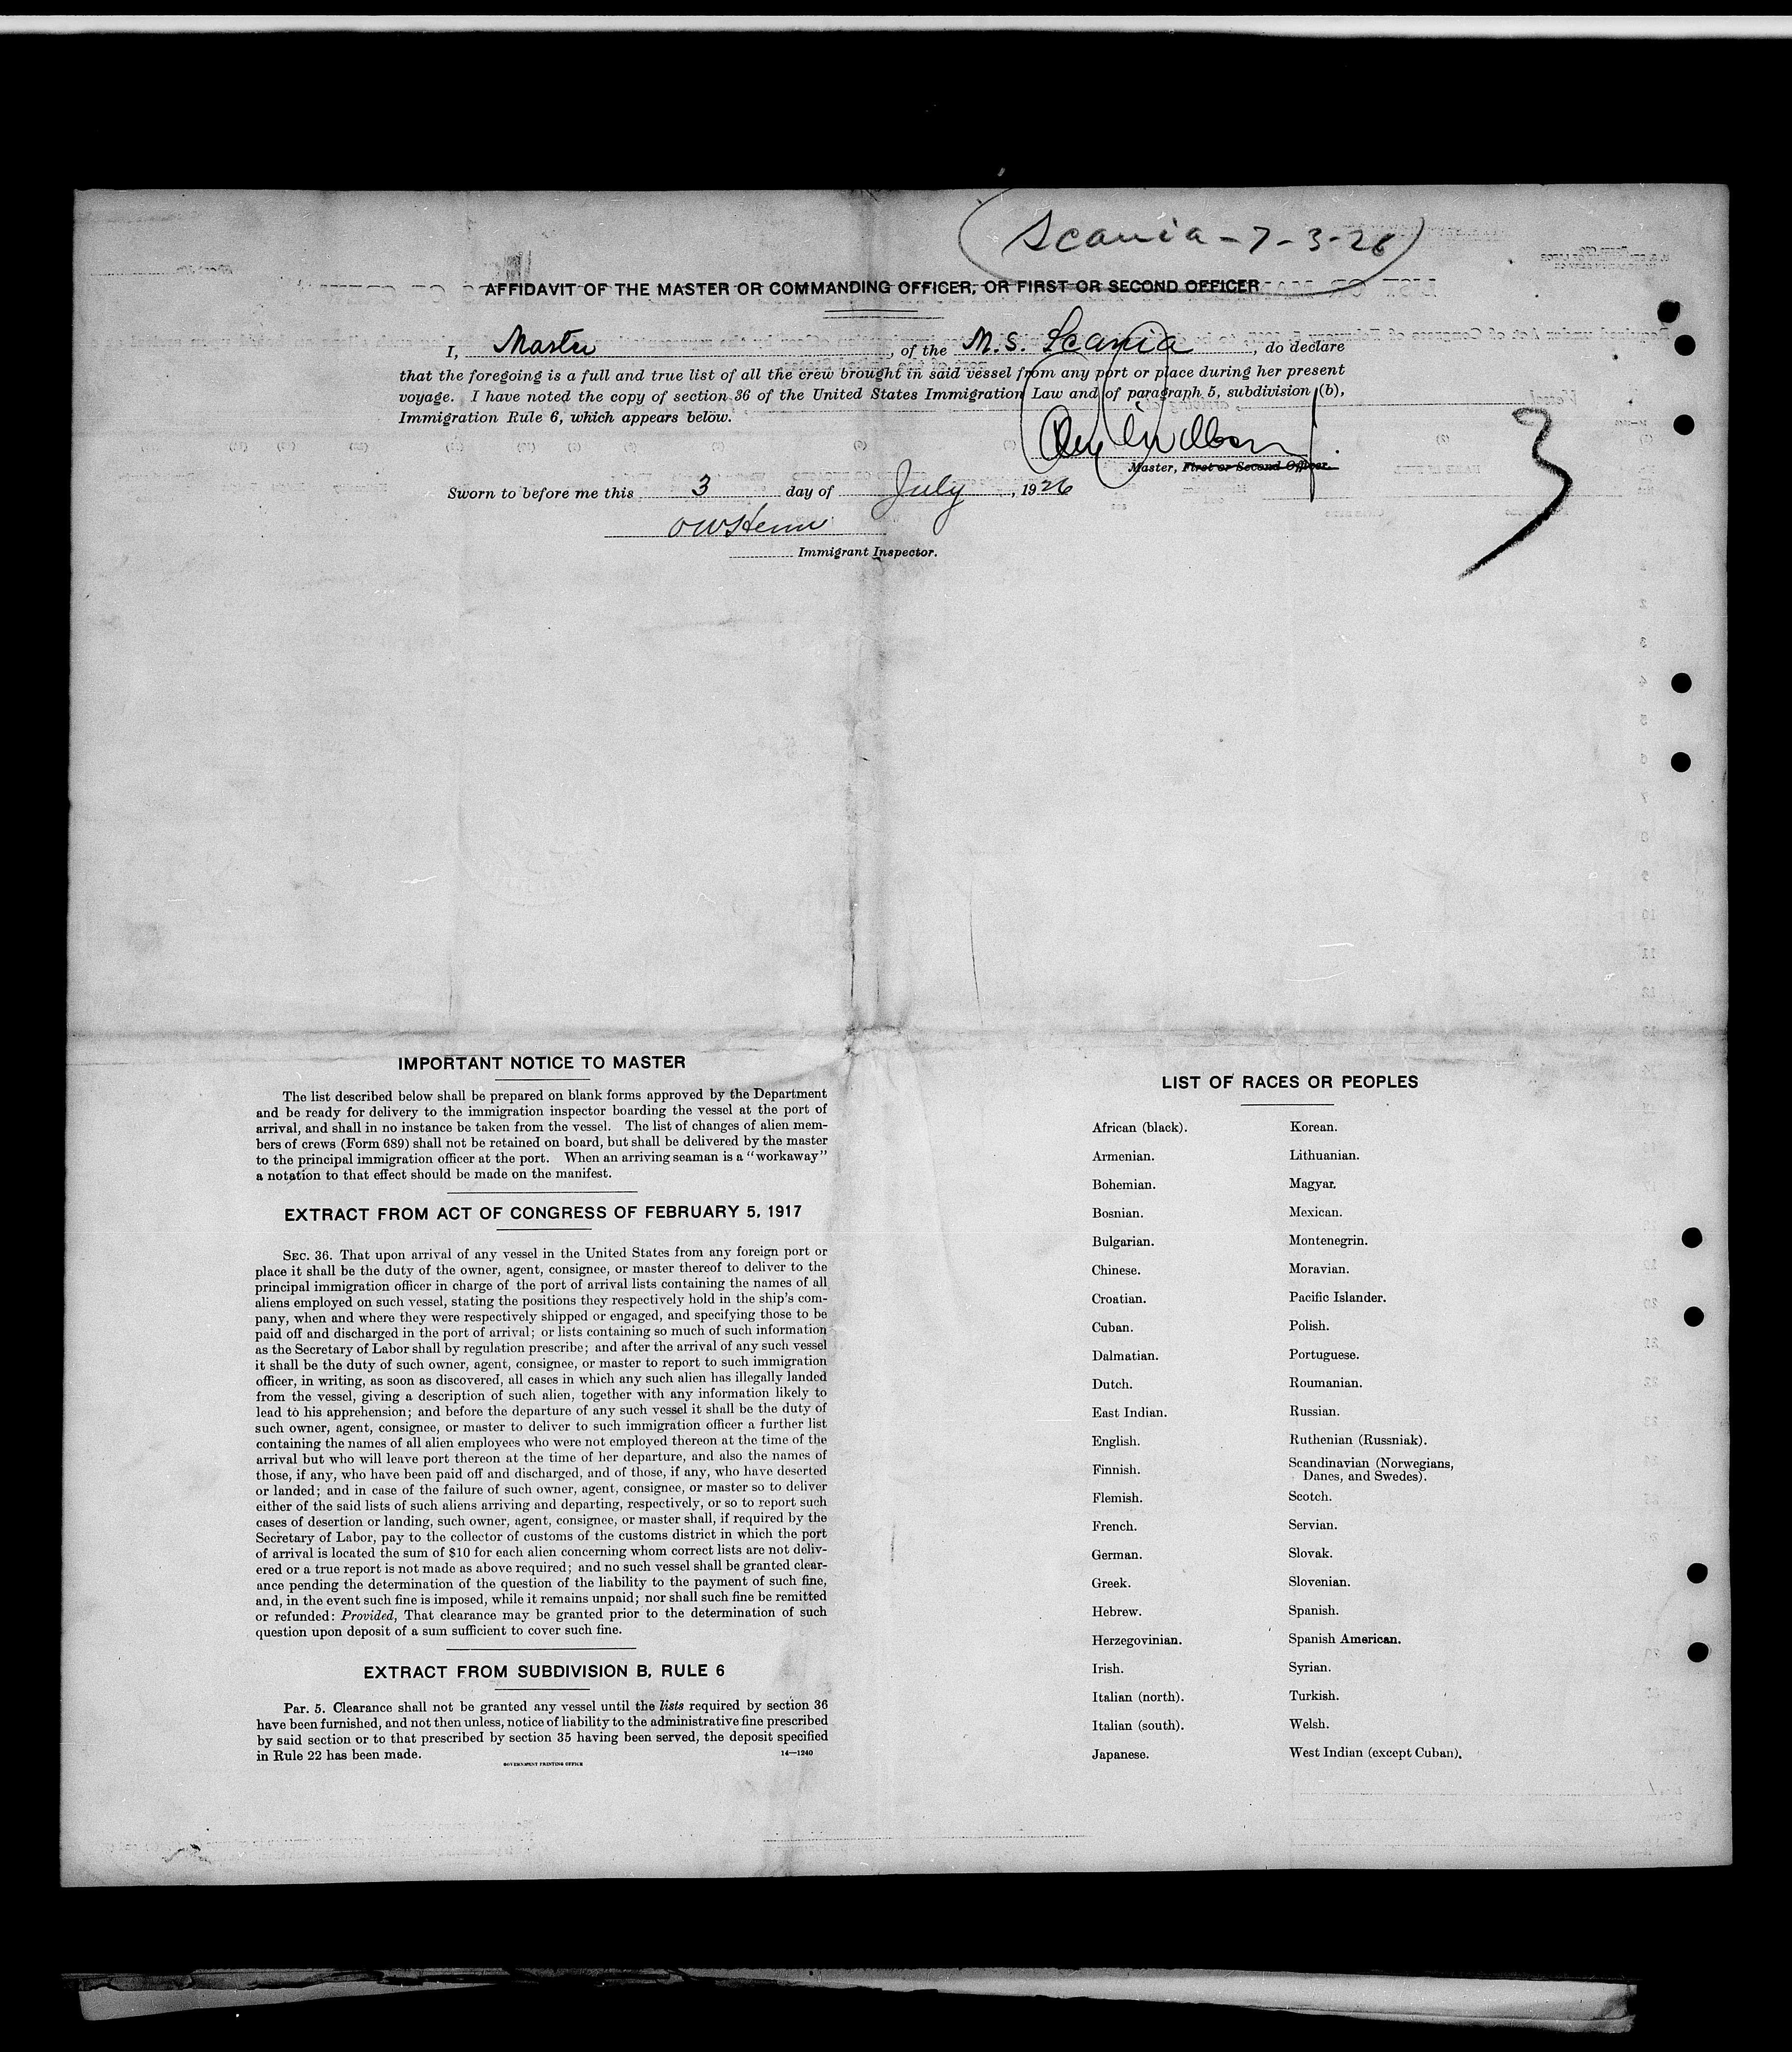 Scania - 7 - 3 - 26
AFFIDAVIT OF THE MASTER OR COMMANDING OFFICER, OR FIRST OR SECOND OFFICER
I, Master, of the M. S. Scania, do declare
that the foregoing is a full and true list of all the crew brought in said vessel from any port or place during her present
voyage. I have noted the copy of section 36 of the United States Immigration Law and of paragraph 5, subdivision (b),
Immigration Rule 6, which appears below.
Master, First or Second Officer.
3
Sworn to before me this 3 day of July, 1926
Immigrant Inspector.
IMPORTANT NOTICE TO MASTER
The list described below shall be prepared on blank forms approved by the Department
and be ready for delivery to the immigration inspector boarding the vessel at the port of
arrival, and shall in no instance be taken from the vessel. The list of changes of alien mem-
bers of crews (Form 689) shall not be retained on board, but shall be delivered by the master
to the principal immigration officer at the port. When an arriving seaman is a "workaway"
a notation to that effect should be made on the manifest.
EXTRACT FROM ACT OF CONGRESS OF FEBRUARY 5, 1917
SEC. 36. That upon arrival of any vessel in the United States from any foreign port or
place it shall be the duty of the owner, agent, consignee, or master thereof to deliver to the
principal immigration officer in charge of the port of arrival lists containing the names of all
aliens employed on such vessel, stating the positions they respectively hold in the ship's com-
pany, when and where they were respectively shipped or engaged, and specifying those to be
paid off and discharged in the port of arrival; or lists containing so much of such information
as the Secretary of Labor shall by regulation prescribe; and after the arrival of any such vessel
it shall be the duty of such owner, agent, consignee, or master to report to such immigration
officer, in writing, as soon as discovered, all cases in which any such alien has illegally landed
from the vessel, giving a description of such alien, together with any information likely to
lead to his apprehension; and before the departure of any such vessel it shall be the duty of
such owner, agent, consignee, or master to deliver to such immigration officer a further list
containing the names of all alien employees who were not employed thereon at the time of the
arrival but who will leave port thereon at the time of her departure, and also the names of
those, if any, who have been paid off and discharged, and of those, if any, who have deserted
or landed; and in case of the failure of such owner, agent, consignee, or master so to deliver
either of the said lists of such aliens arriving and departing, respectively, or so to report such
cases of desertion or landing, such owner, agent, consignee, or master shall, if required by the
Secretary of Labor, pay to the collector of customs of the customs district in which the port
of arrival is located the sum of $10 for each alien concerning whom correct lists are not deliv-
ered or a true report is not made as above required; and no such vessel shall be granted clear-
ance pending the determination of the question of the liability to the payment of such fine,
and, in the event such fine is imposed, while it remains unpaid; nor shall such fine be remitted
or refunded: Provided, That clearance may be granted prior to the determination of such
question upon deposit of a sum sufficient to cover such fine.
EXTRACT FROM SUBDIVISION B, RULE 6
Par. 5. Clearance shall not be granted any vessel until the lists required by section 36
have been furnished, and not then unless, notice of liability to the administrative fine prescribed
by said section or to that prescribed by section 35 having been served, the deposit specified
in Rule 22 has been made.
14—1240
GOVERNMENT PRINTING OFFICE
LIST OF RACES OR PEOPLES
African (black).
Armenian.
Bohemian.
Bosnian.
Bulgarian.
Chinese.
Croatian.
Cuban.
Dalmatian.
Dutch.
East Indian.
English.
Finnish.
Flemish.
French.
German.
Greek.
Hebrew.
Herzegovinian.
Irish.
Italian (north).
Italian (south).
Japanese.
Korean.
Lithuanian.
Magyar.
Mexican.
Montenegrin.
Moravian.
Pacific Islander.
Polish.
Portuguese.
Roumanian.
Russian.
Ruthenian (Russniak).
Scandinavian (Norwegians,
Danes, and Swedes).
Scotch.
Servian.
Slovak.
Slovenian.
Spanish.
Spanish American.
Syrian.
Turkish.
Welsh.
West Indian (except Cuban).